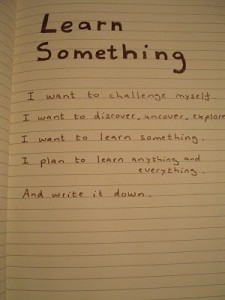 Learn
Something
I want to challenge myself
I want to discover, uncover, explore
I want to learn something.
I plan to learn anything and
everything.
And write it down.